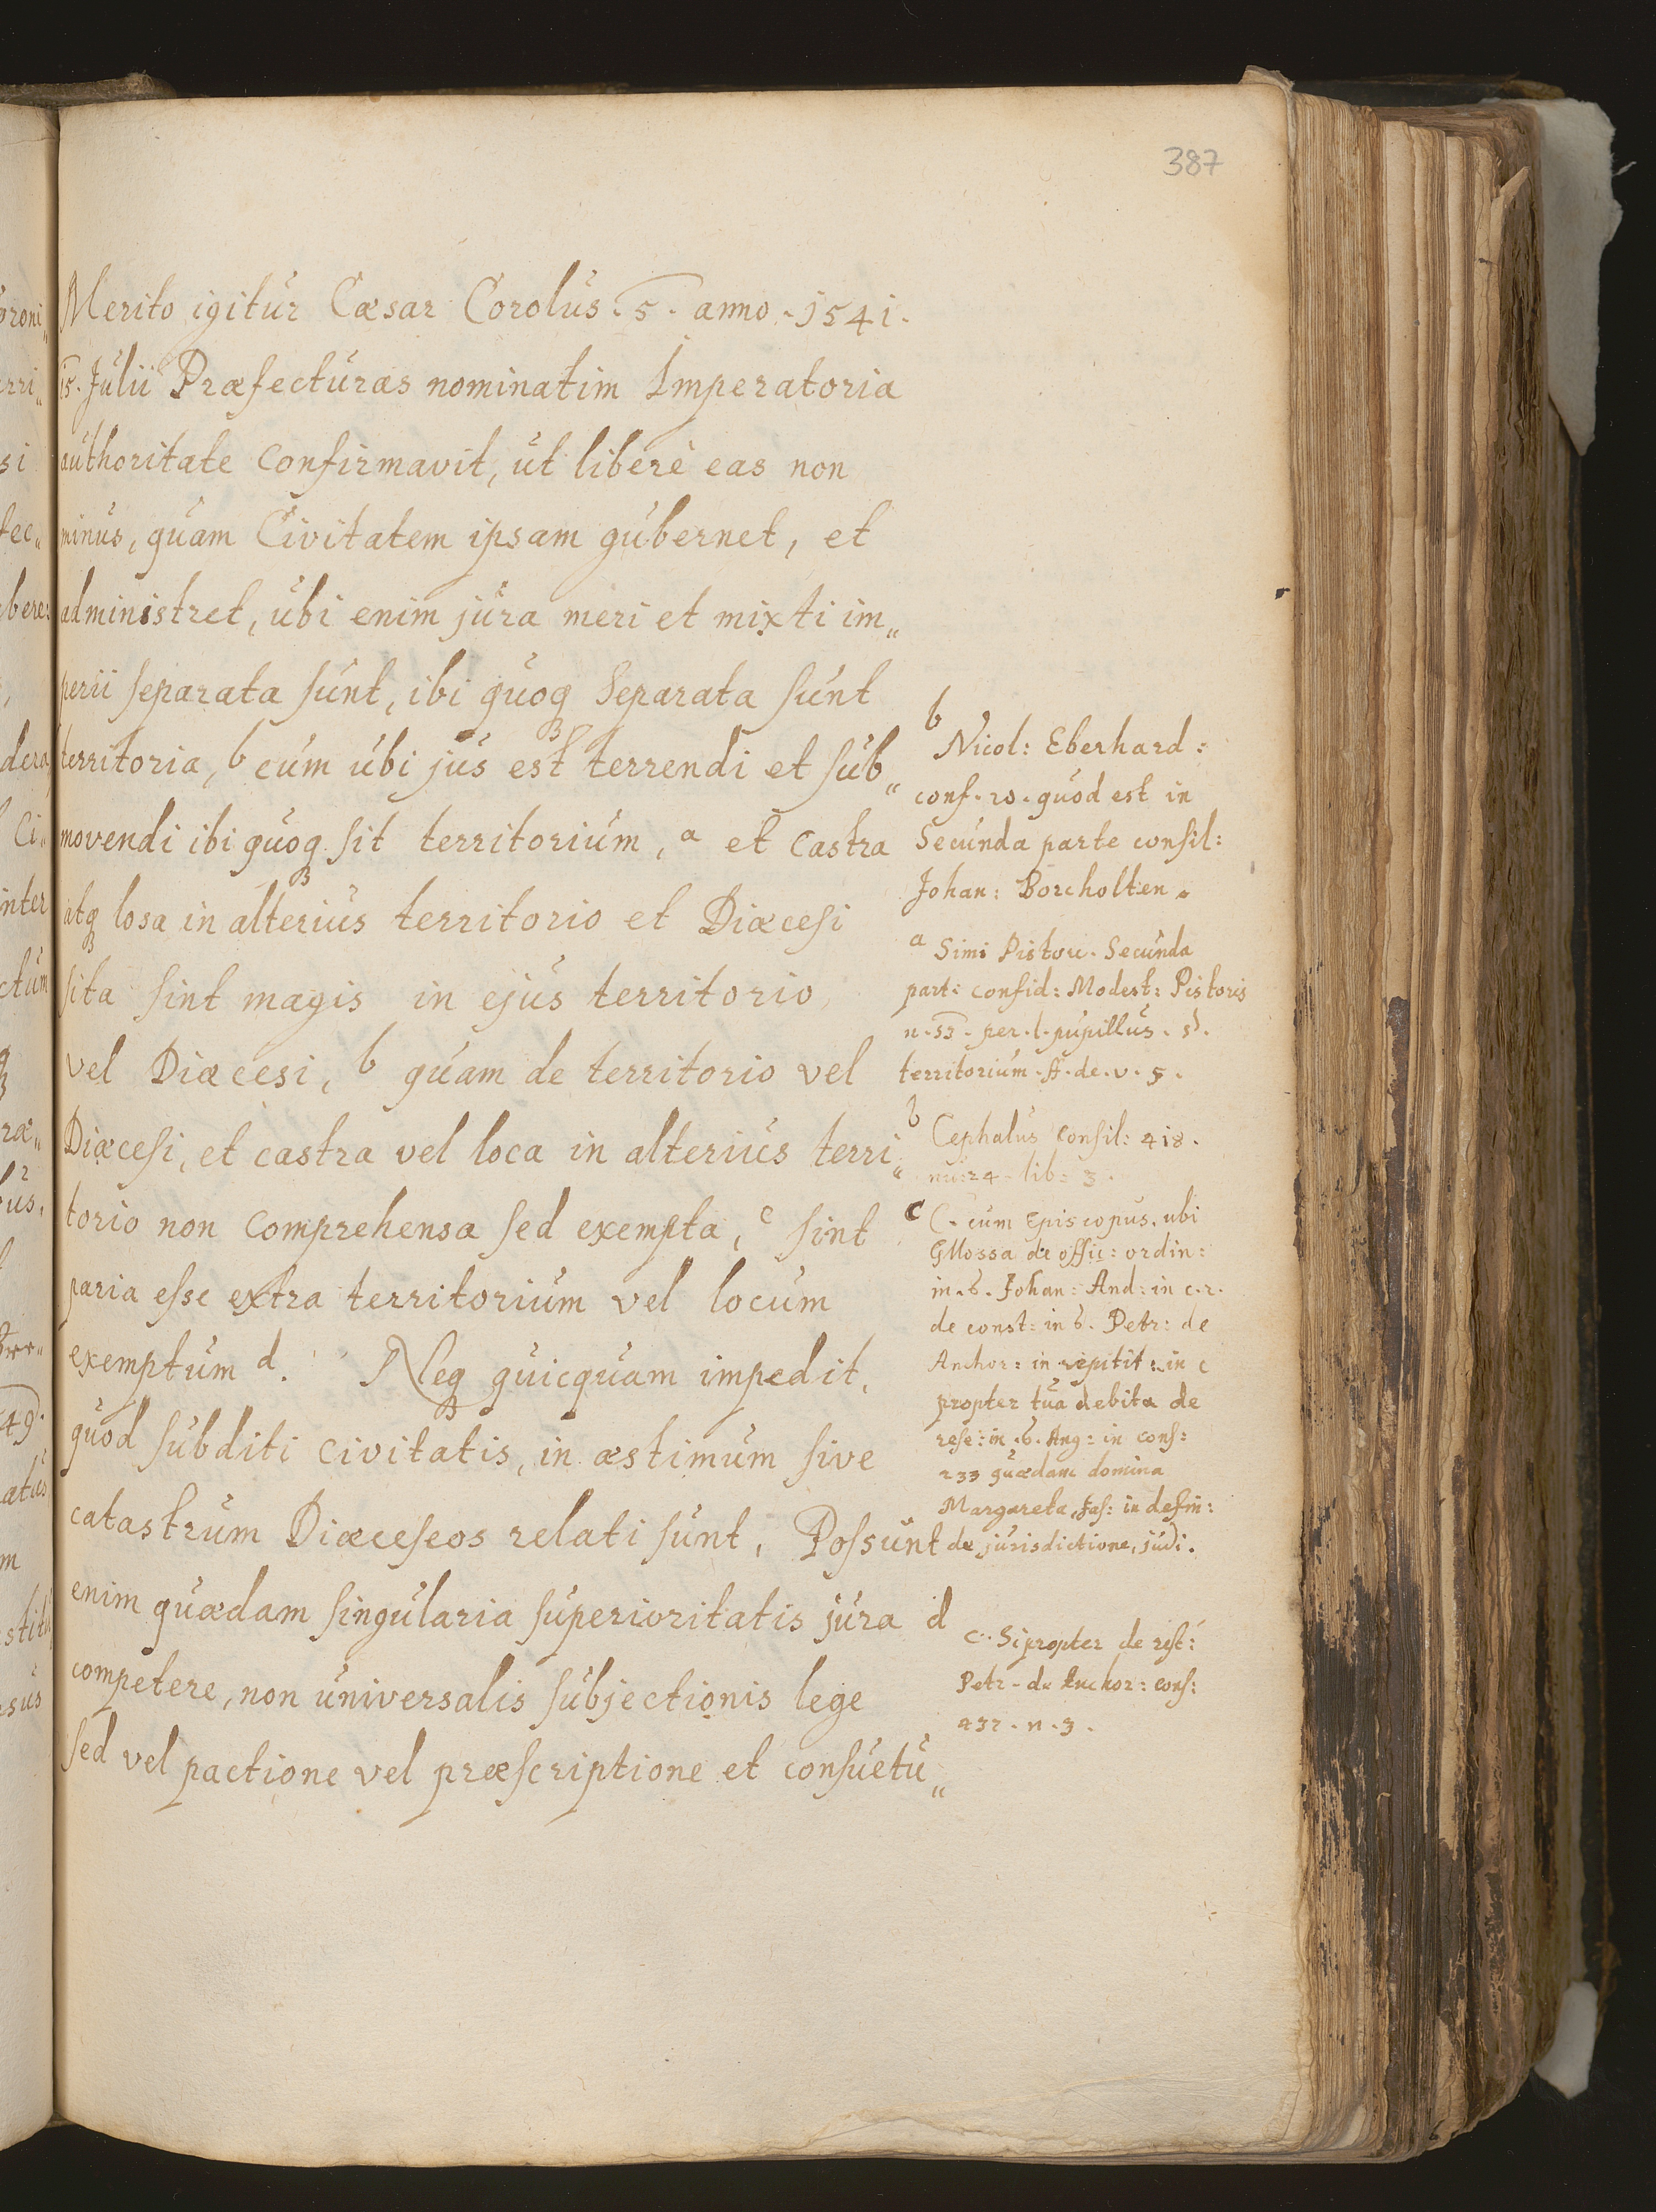 387
Merito igitur Cæsar Corolus. 5. anno. 1541.
15. Julii Præfecturas nominatim Imperatoria
authoritate confirmavit, ut liberè eas non
minus, quam Civitatem ipsam gubernet, et
administret, ubi enim jura meri et mixti im„
perii separata sunt, ibi quoq separata sunt
territoria, b cum ubi jus est terrendi et sub„
movendi ibi quoq sit territorium, a et castra
atq losa in alterius territorio et Diæcesi
sita sint magis in ejus territorio
vel Diæcesi, b quam de territorio vel
Diæcesi, et castra vel loca in alterius terri„
torio non comprehensa sed exempta, c sint
paria esse extra territorium vel locum
exemptum d. Neq quicquam impedit,
quod subditi civitatis, in æstimum sive
catastrum Diæceseos relati sunt, Possunt
enim quædam singularia superioritatis jura
competere, non universalis subjectionis lege
sed vel pactione vel præscriptione et consuetu„
b
Nicol: Eberhard:
cons. 20. quod est in
Secunda parte consil:
Johan: Borcholten.
a Simi Pistor. Secunda
part: consid: Modest: Pistoris
n. 53. per. l. pupillus. §.
territorium. ff. de. v. s.
b
Cephalus consil: 418.
nu: 24. lib: 3.
c C. cum Episcopus. ubi
Gllossa de offic: ordin:
in. 6. Johan: And: in c. 2.
de const: in 6. Petr: de
Anchor: in repitit: in c
propter tua debita de
rese: in. 6. Ang: in cons:
233 quædam domina
Margareta, Jas: in defin:
de jurisdictione, judi.
d
c. Si propter de rest:
Petr. de Anchor: cons:
232. n. 3.